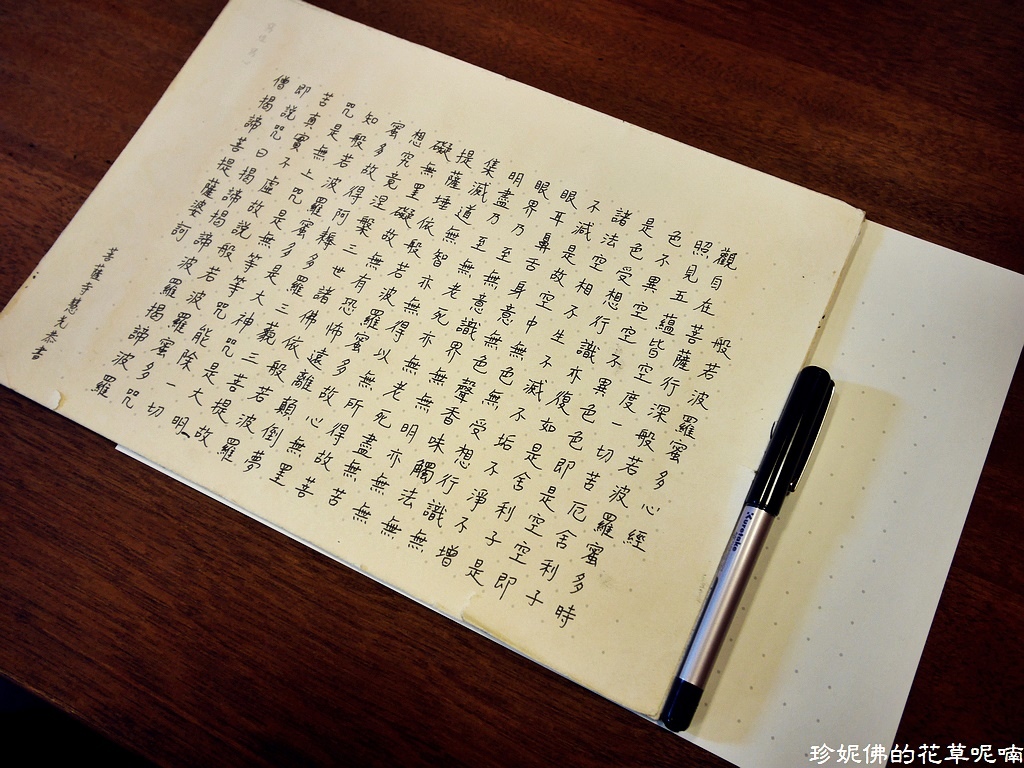 般若波羅蜜多心經
觀自在菩薩行深般若波羅蜜多時
照見五蘊皆空度一切苦厄舍利子
色不異空空不異色色即是空空即
是色受想行識亦復如是舍利子是
諸法空相不生不滅不垢不淨不增
不減是故空中無色無受想行識無
眼耳鼻舌身意無色聲香味觸法無
眼界乃至無意識界無無明亦無無
明盡乃至無老死亦無老死盡無苦
集滅道無智亦無得以無所得故菩
提薩埵依般若波羅蜜多故心無罣
礙無罣礙故無有恐怖遠離顛倒夢
想究竟涅槃三世諸佛依般若波羅
蜜多故得阿耨多羅三藐三菩提故
知般若波羅蜜多是大神咒是大明
咒是無上咒是無等等咒能除一切
苦真實不虛故說般若波羅蜜多咒
即說咒曰揭諦揭諦波羅揭諦波羅
僧揭諦菩提薩婆訶
菩薩寺慧光恭書
Kuretake
珍妮佛的花草呢喃